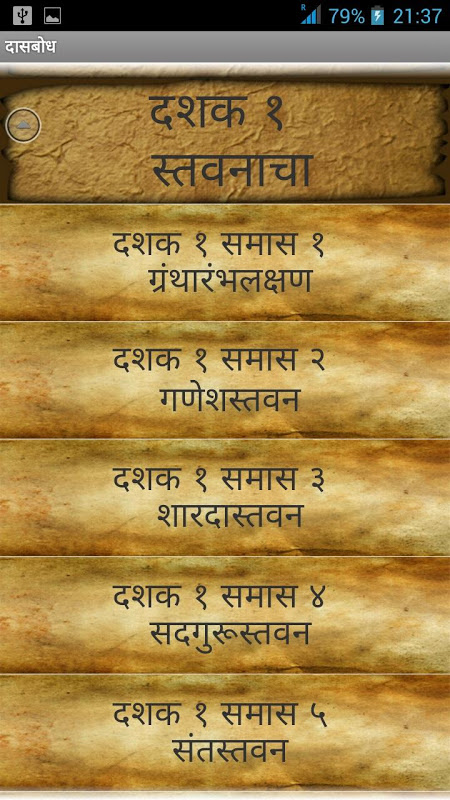 R 79% 21:37
दासबोध
दशक १
स्तवनाचा
दशक १ समास १
ग्रंथारंभलक्षण
दशक १ समास २
गणेशस्तवन
दशक १ समास ३
शारदास्तवन
दशक १ समास ४
सदगुरूस्तवन
दशक १ समास ५
संतस्तवन